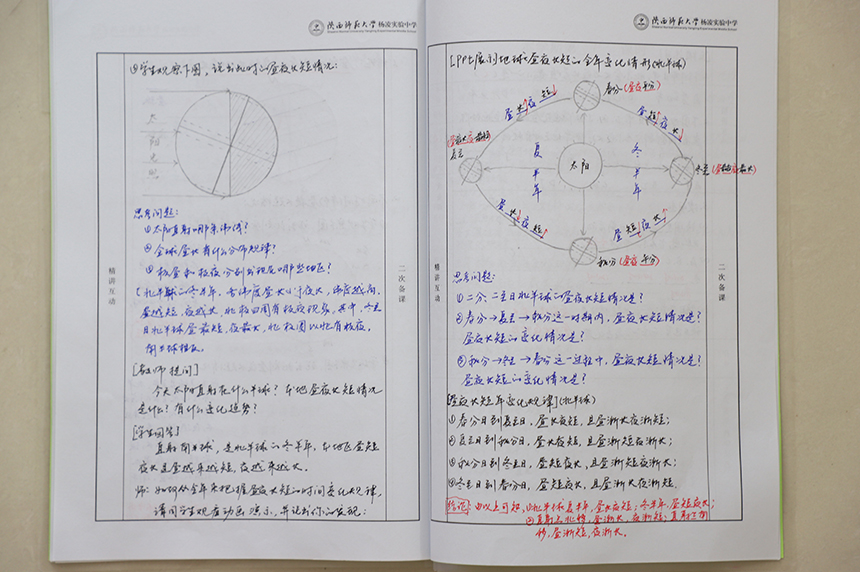 陕西师范大学杨凌实验中学
④学生观察下图,说出此时的昼夜长短情况:
太
阳
光
照
思考问题:
①太阳直射哪条纬线?
②全球昼长有什么分布规律?
③极昼和极夜分别出现在哪些地区?
(北半球的冬半年,各纬度昼长小于夜长,纬度越高,
昼越短,夜越长,北极四周有极夜现象,其中,冬至
日北半球昼最短,夜最长,北极圈以北有极夜,
南半球相反。
[教师提问]
今天太阳直射在什么半球?本地昼夜长短情况
是什么?有什么变化趋势?
[学生回答]
直射南半球,是北半球的冬半年,本地区昼短
夜长且昼越来越短,夜越来越长。
师:如何从全年来把握昼夜长短的时间变化规律,
请同学生观看动画演示,并说出你的发现:
精讲互动
二次备课
陕西师范大学杨凌实验中学
[PPt展示]地球昼夜长短的全年变化情形(北半球)
春分(昼夜平分)
昼长↑夜短↓
昼短↑夜长↓
夏至
夏半年
太阳
冬半年
冬至(昼最短夜最长)
昼长↓夜短↑
昼短↓夜长↑
秋分(昼夜平分)
思考问题:
①二分、二至日北半球的昼夜长短情况是?
②春分→夏至→秋分这一时期内,昼夜长短情况是?
昼夜长短的变化情况是?
③秋分→冬至→春分这一过程中,昼夜长短情况是?
昼夜长短的变化情况是?
[昼夜长短年变化规律](北半球)
①春分日到夏至日,昼长夜短,且昼渐长夜渐短;
②夏至日到秋分日,昼长夜短,且昼渐短夜渐长;
③秋分日到冬至日,昼短夜长,且昼渐短夜渐长;
④冬至日到春分日,昼短夜长,且昼渐长夜渐短。
结论:由以上可知,①北半球夏半年,昼长夜短;冬半年,昼短夜长;
②直射点北移,昼渐长,夜渐短;直射点南
移,昼渐短,夜渐长。
精讲互动
二次备课